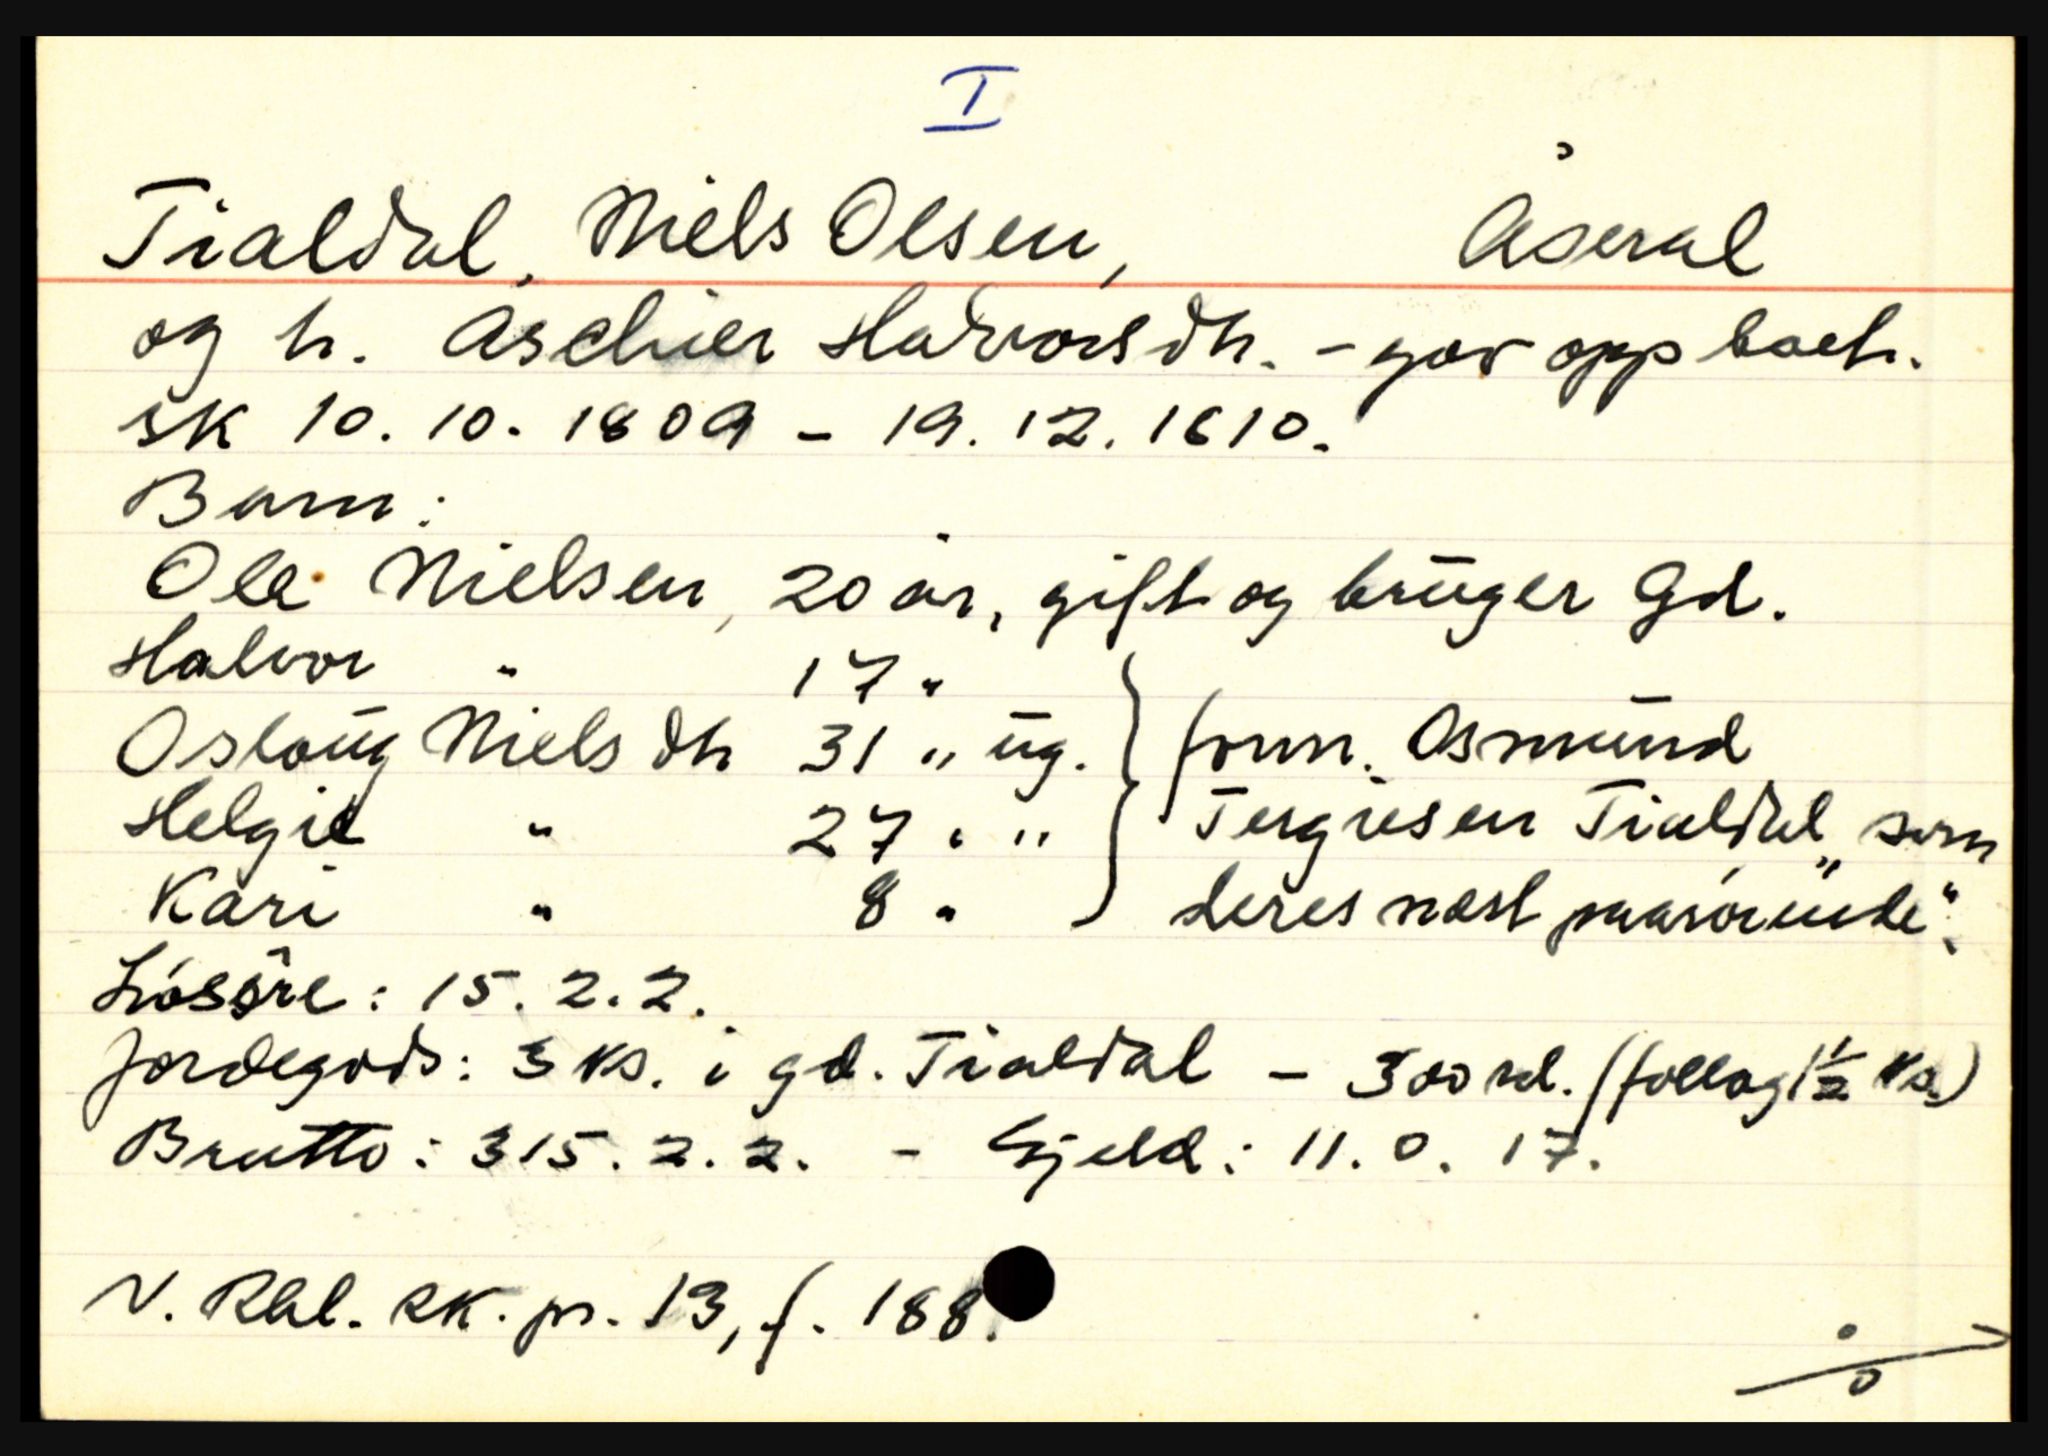 I
Tialdal, Niels Olsen, Åseral
og h. Aschier Halvorsdtr. - gav opp boet.
sk 10. 10. 1809 - 19. 12. 1810.
Barn:
Ole Nielsen, 20 år, gift og brüger Gd.
Halvor " 17 "
Oslaüg Nielsdtr 31 " üg.
Helgie " 27 " "
Kari " 8 "
} form. Osmünd
Tergiesen Tialdal, som
"deres næst paarörende".
Lösöre: 15. 2. 2.
Jordegods: 3 ks. i gd. Tialdal - 300 rd. (follog 1 1/2 ks.)
Brutto: 315. 2. 2. - Gjeld: 11. 0. 17.
N. Rbl. sk. pr. 13, f. 188.